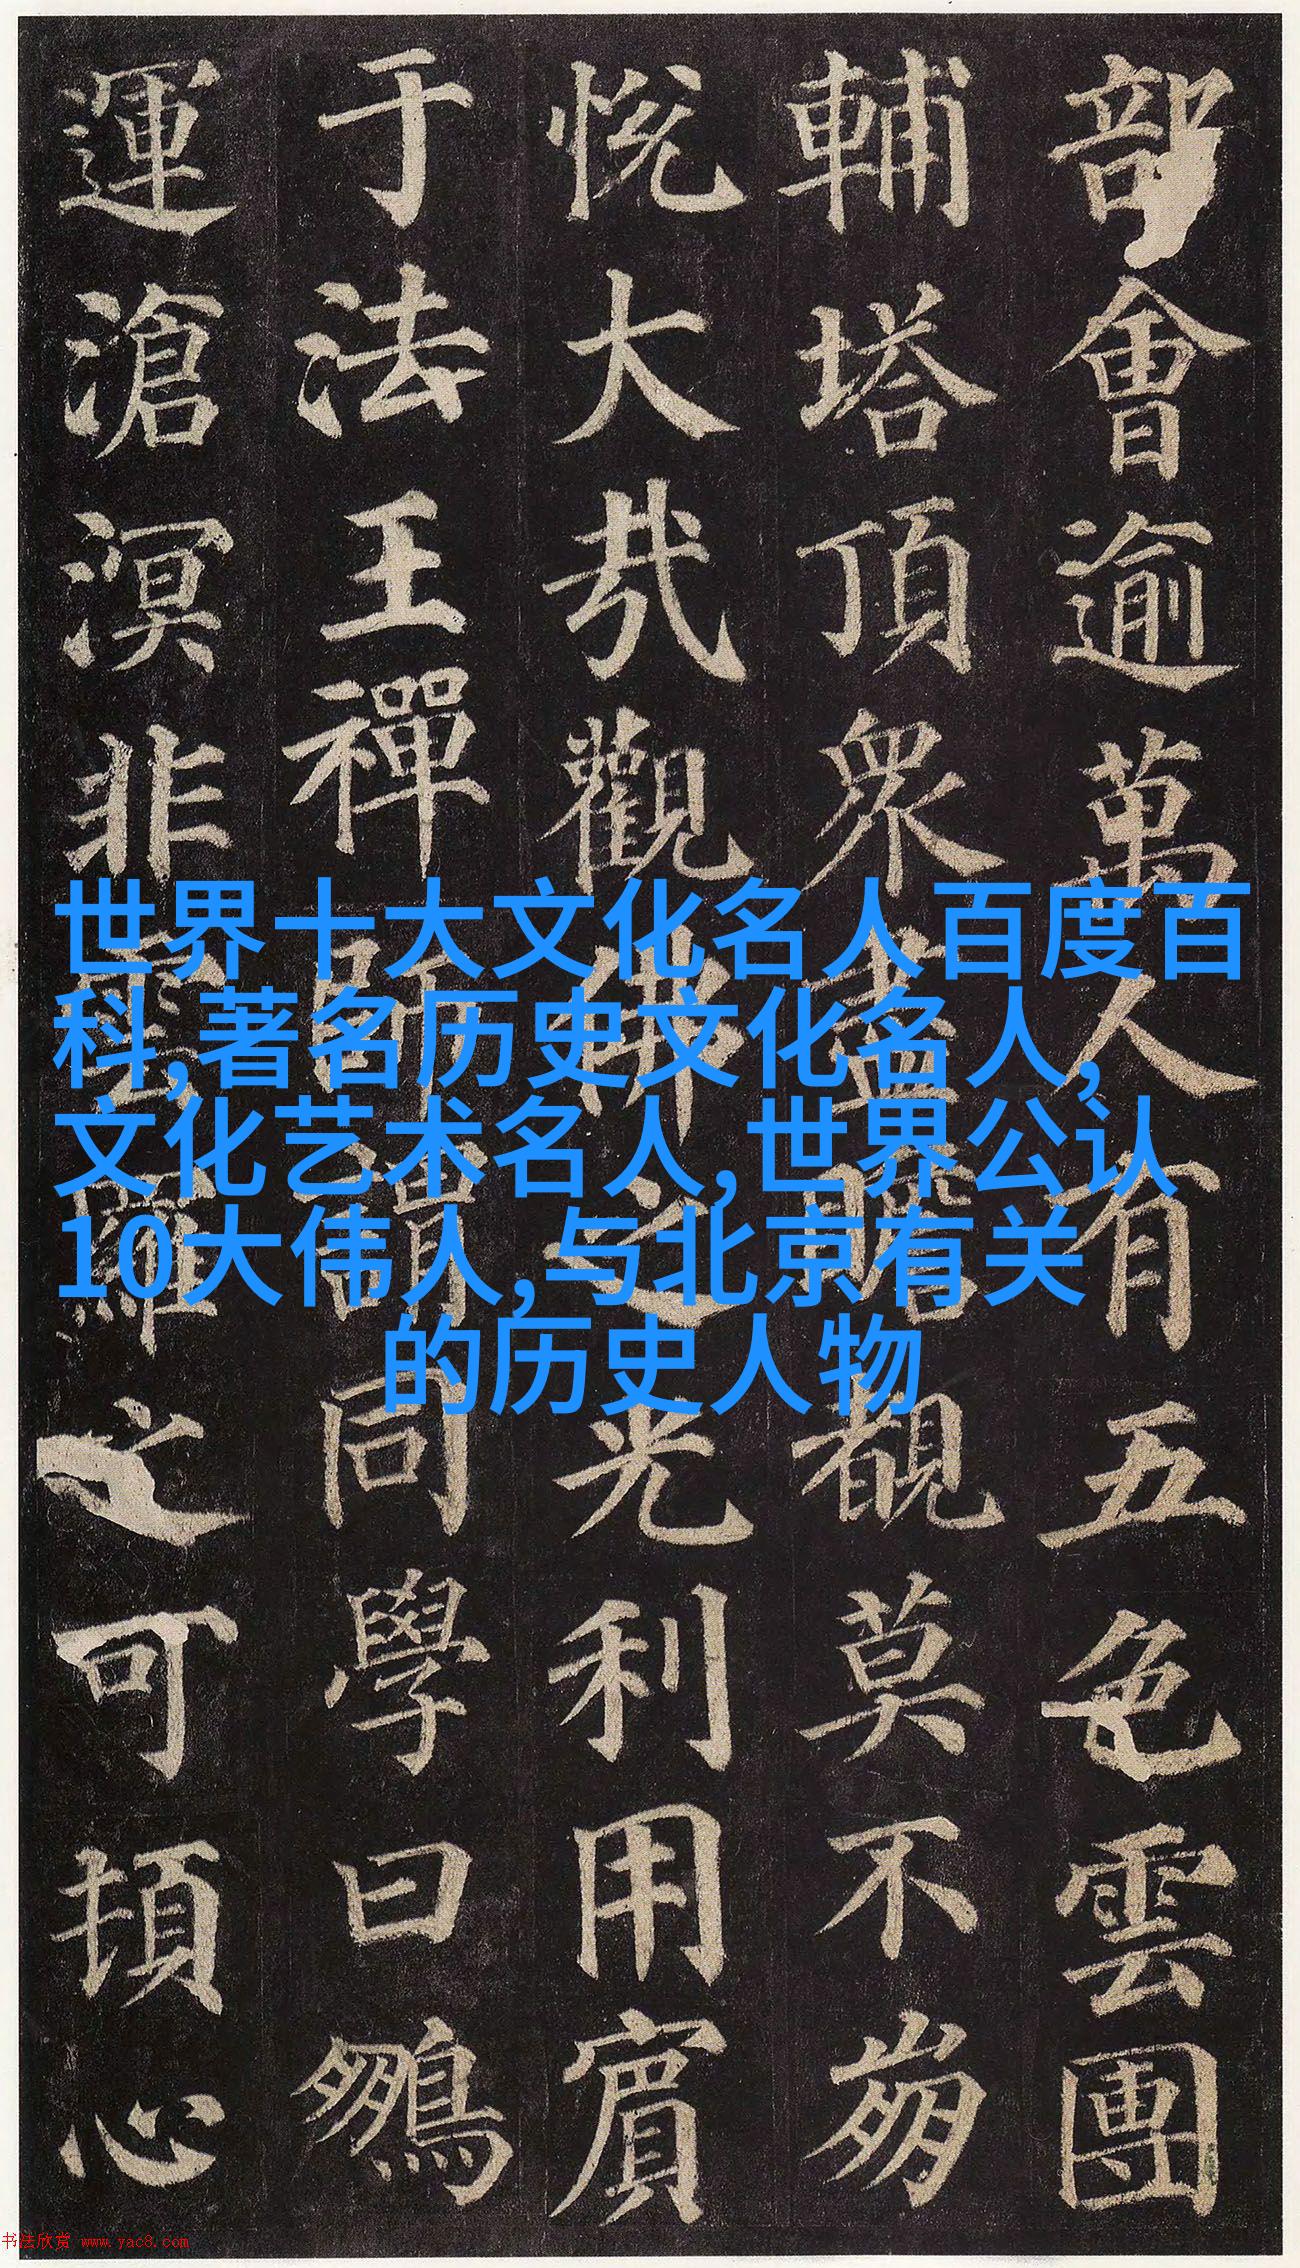 部會逾萬人有五色雲團
輔塔頂眾盡瞻覩莫不崩
悅大哉觀佛之光利用賓
于法王禪師謂同學曰鵬
運滄溟非雲羅之可頓心
世界十大文化名人百度百
科,著名历史文化名人,
文化艺术名人,世界公认
10大伟人,与北京有关
的历史人物
书法欣赏 www.yac8.com